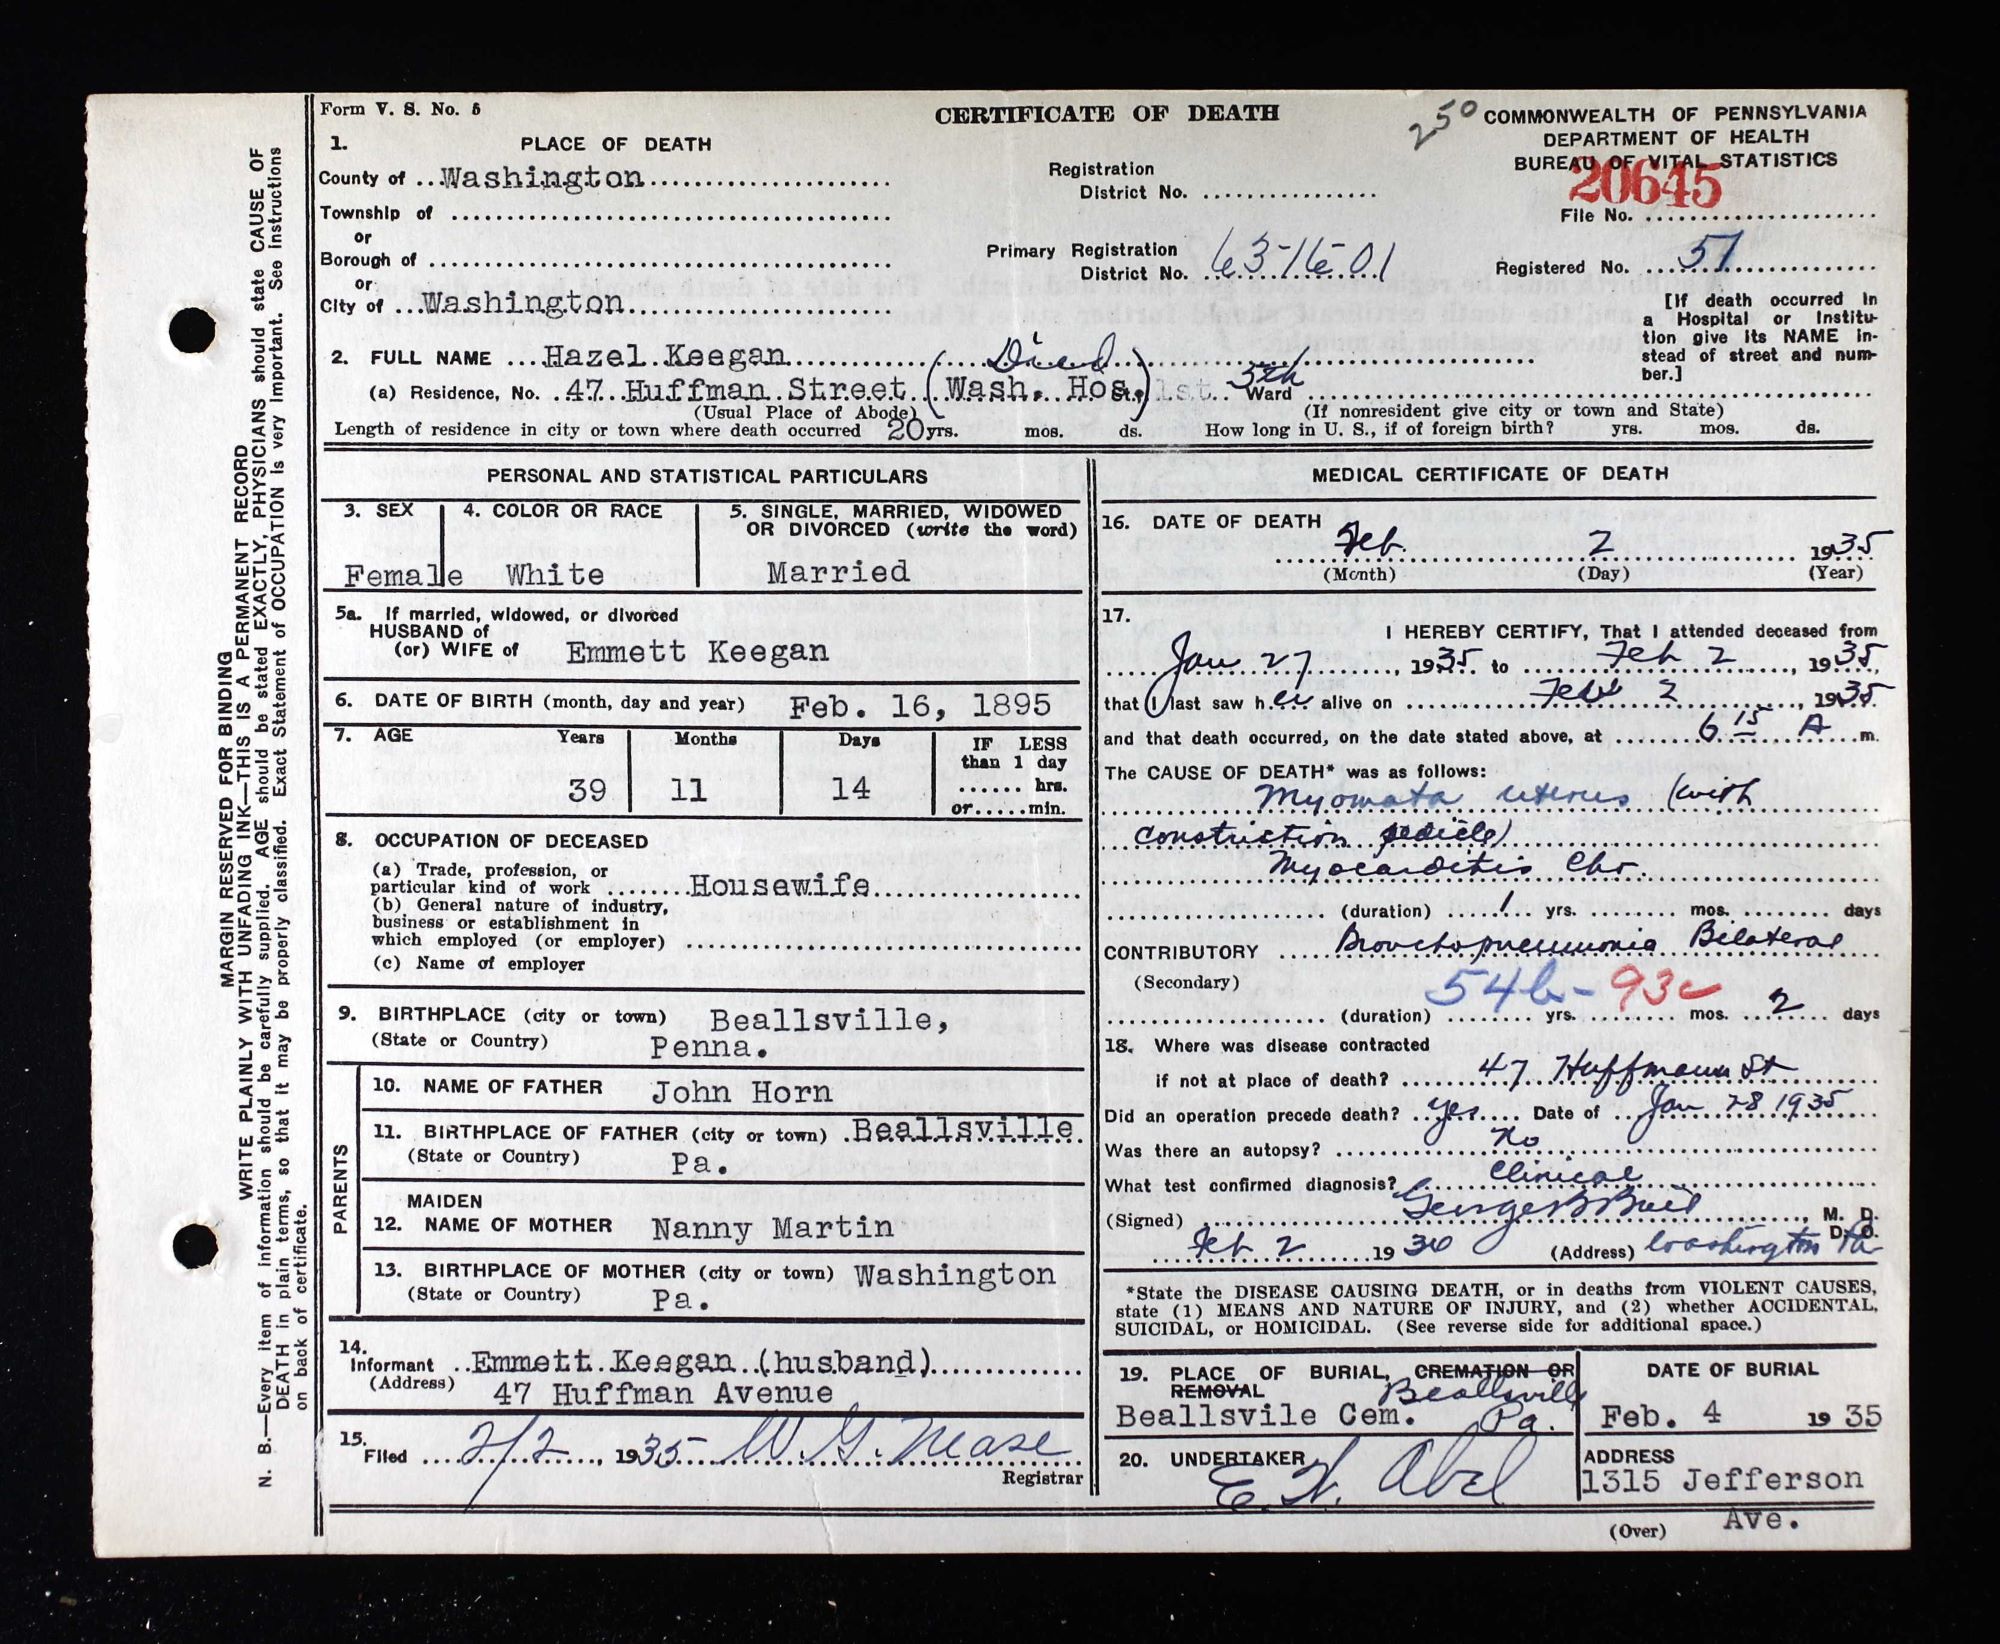 Form V. S. No. 5
CERTIFICATE OF DEATH
250
COMMONWEALTH OF PENNSYLVANIA
DEPARTMENT OF HEALTH
BUREAU OF VITAL STATISTICS
20645
File No.
1. PLACE OF DEATH
County of Washington
Township of
or
Borough of
or
City of Washington
Registration
District No.
Primary Registration
District No. 63-16-01
Registered No. 51
[If death occurred in
a Hospital or Institu-
tion give its NAME in-
stead of street and num-
ber.]
2. FULL NAME Hazel Keegan (Died
(a) Residence, No. 47 Huffman Street (Wash. Hos.) St., 1st 5th Ward
(Usual Place of Abode)
(If nonresident give city or town and State)
Length of residence in city or town where death occurred 20 yrs. mos. ds. How long in U. S., if of foreign birth? yrs. mos. ds.
PERSONAL AND STATISTICAL PARTICULARS
3. SEX
Female
4. COLOR OR RACE
White
5. SINGLE, MARRIED, WIDOWED
OR DIVORCED (write the word)
Married
5a. If married, widowed, or divorced
HUSBAND of
(or) WIFE of Emmett Keegan
6. DATE OF BIRTH (month, day and year) Feb. 16, 1895
7. AGE Years Months Days IF LESS
than 1 day
39 11 14 hrs.
or min.
8. OCCUPATION OF DECEASED
(a) Trade, profession, or
particular kind of work Housewife
(b) General nature of industry,
business or establishment in
which employed (or employer)
(c) Name of employer
9. BIRTHPLACE (city or town) Beallsville,
(State or Country) Penna.
PARENTS
10. NAME OF FATHER John Horn
11. BIRTHPLACE OF FATHER (city or town) Beallsville
(State or Country) Pa.
MAIDEN
12. NAME OF MOTHER Nanny Martin
13. BIRTHPLACE OF MOTHER (city or town) Washington
(State or Country) Pa.
14.
Informant Emmett Keegan (husband)
(Address) 47 Huffman Avenue
15.
Filed 2/2, 1935 W. G. Nease
Registrar
MEDICAL CERTIFICATE OF DEATH
16. DATE OF DEATH
Feb. 2 1935
(Month) (Day) (Year)
17.
I HEREBY CERTIFY, That I attended deceased from
Jan 27, 1935 to Feb 2, 1935
that I last saw her alive on Feb 2, 1935
and that death occurred, on the date stated above, at 6 15 A m.
The CAUSE OF DEATH* was as follows:
Myomata uterus (with
constriction pedicle)
Myocarditis Chr.
(duration) 1 yrs. mos. days
CONTRIBUTORY Bronchopneumonia Bilateral
(Secondary)
54b- 93c
(duration) yrs. mos. 2 days
18. Where was disease contracted
if not at place of death? 47 Huffmann St
Did an operation precede death? Yes Date of Jan 28 1935
Was there an autopsy? no
What test confirmed diagnosis? Clinical
(Signed) George B, M. D.
D. O.
Feb 2 19 (Address) Washington Pa
*State the DISEASE CAUSING DEATH, or in deaths from VIOLENT CAUSES,
state (1) MEANS AND NATURE OF INJURY, and (2) whether ACCIDENTAL,
SUICIDAL, or HOMICIDAL. (See reverse side for additional space.)
19. PLACE OF BURIAL, CREMATION OR
REMOVAL Beallsville
Beallsvile Cem. Pa.
DATE OF BURIAL
Feb. 4 1935
20. UNDERTAKER
E. H. Abel
ADDRESS
1315 Jefferson
Ave.
(Over)
MARGIN RESERVED FOR BINDING
WRITE PLAINLY WITH UNFADING INK—THIS IS A PERMANENT RECORD
N. B.—Every item of information should be carefully supplied. AGE should be stated EXACTLY, PHYSICIANS should state CAUSE OF
DEATH in plain terms, so that it may be properly classified. Exact Statement of OCCUPATION is very important. See instructions
on back of certificate.